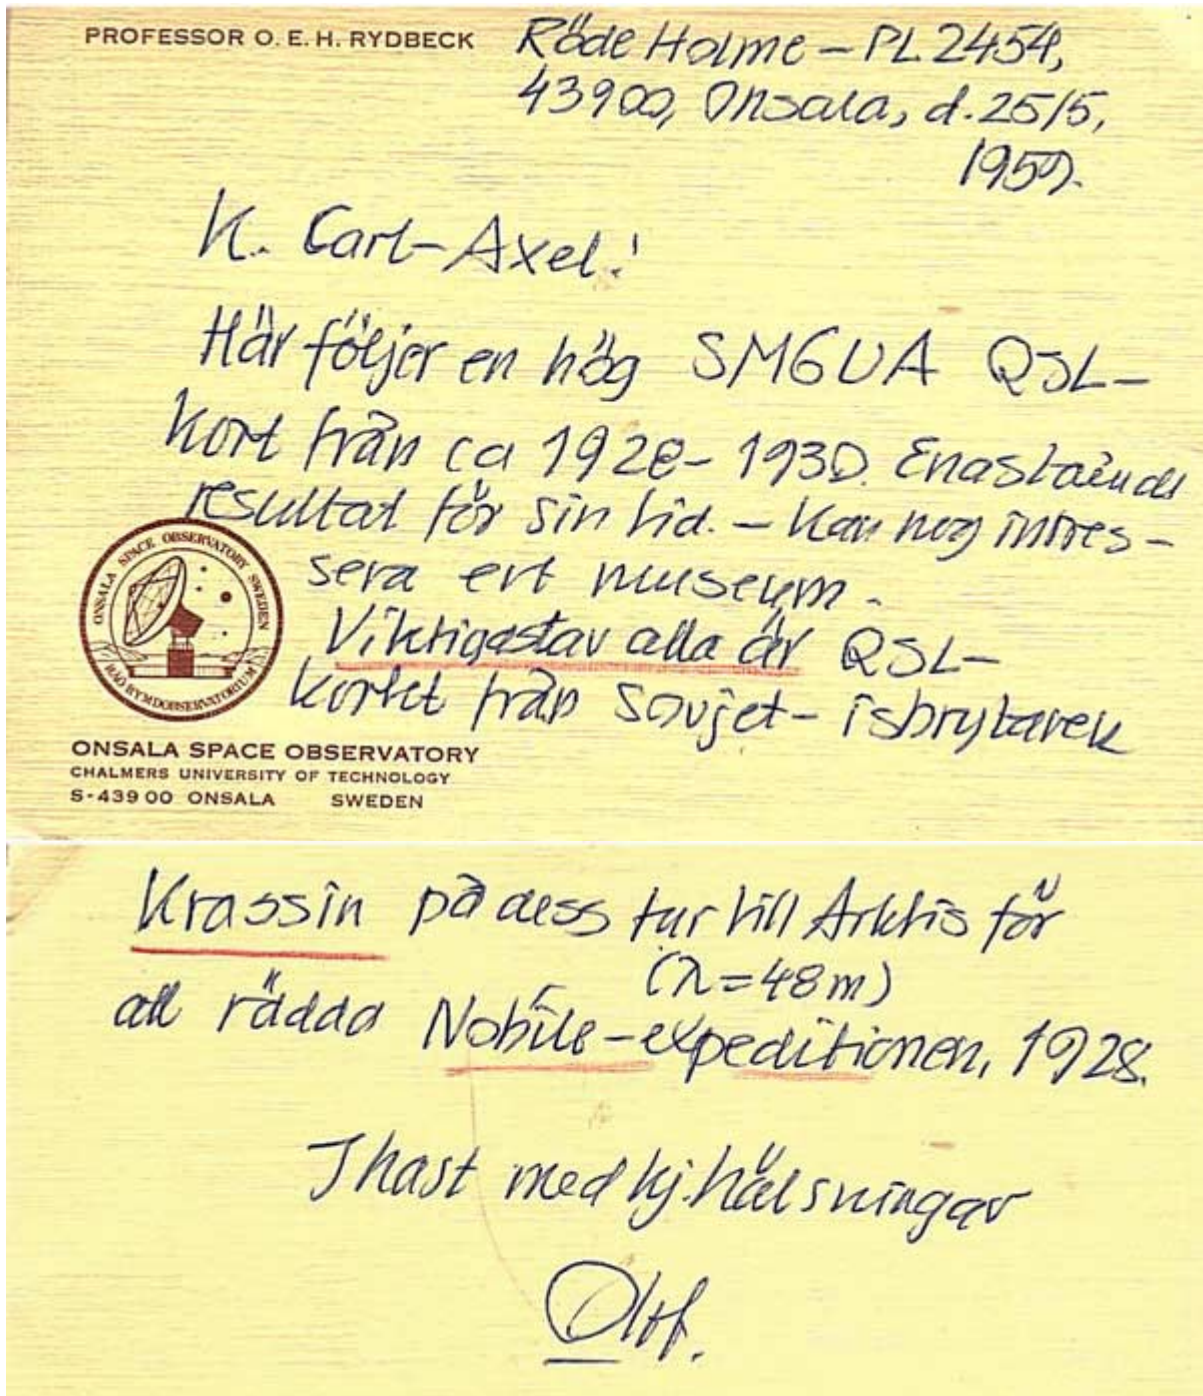 PROFESSOR O. E. H. RYDBECK
Röde Holme – PL 2454,
43900, Onsala, d. 25/5,
K. Carl-Axel!
Här följer en hög SM6UA QSL-
kort från ca 1928-1930. Enastående
resultat för sin tid. – Kan nog intres-
sera ert museum.
Viktigast av alla är QSL-
kortet från Sovjet-isbrytaren
ONSALA SPACE OBSERVATORY SWEDEN
RÅÖ RYMDOBSERVATORIUM
ONSALA SPACE OBSERVATORY
CHALMERS UNIVERSITY OF TECHNOLOGY
S-439 00 ONSALA SWEDEN
Krassin på dess tur till Arktis för
(λ=48m)
att rädda Nobile-expeditionen, 1928.
I hast med hj. hälsningar
Olof.